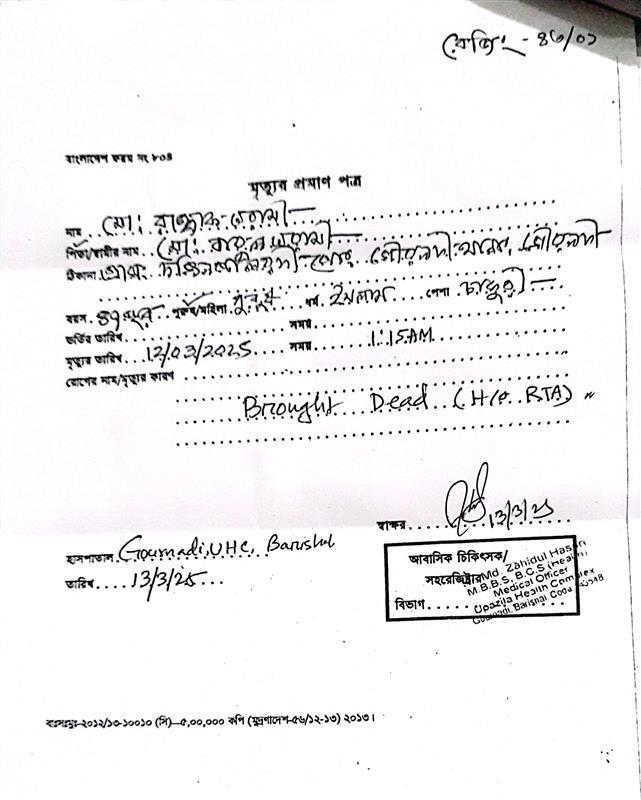 রেজিঃ - ৪৬/০১
বাংলাদেশ ফরম নং ৮০৪
মৃত্যুর প্রমাণ পত্র
নাম মোঃ রাজ্জাক
পিতা/স্বামীর নাম মোঃ
ঠিকানা গ্রামঃ গৌরনদী গৌরনদী
বয়স পুরুষ/মহিলা পুরুষ ধর্ম ইসলাম পেশা চাকুরী
ভর্তির তারিখ সময়
মৃত্যুর তারিখ 12/03/2025 সময় 1:15AM
রোগের নাম/মৃত্যুর কারণ
Brought Dead (H/o RTA)
স্বাক্ষর 13/3/25
হাসপাতাল Gournadi, UHC, Barishal
তারিখ 13/3/25
আবাসিক চিকিৎসক/
সহরেজিষ্ট্রার
বিভাগ
Md. Zahidul Hasan
M.B.B.S, B.C.S (Health)
Medical Officer
Upazila Health Complex
Gournadi, Barishal
বাঃসঃমুঃ-২০১২/১৩-১০০১০ (সি)—৫,০০,০০০ কপি (মুদ্রণাদেশ-৫৬/১২-১৩) ২০১৩।